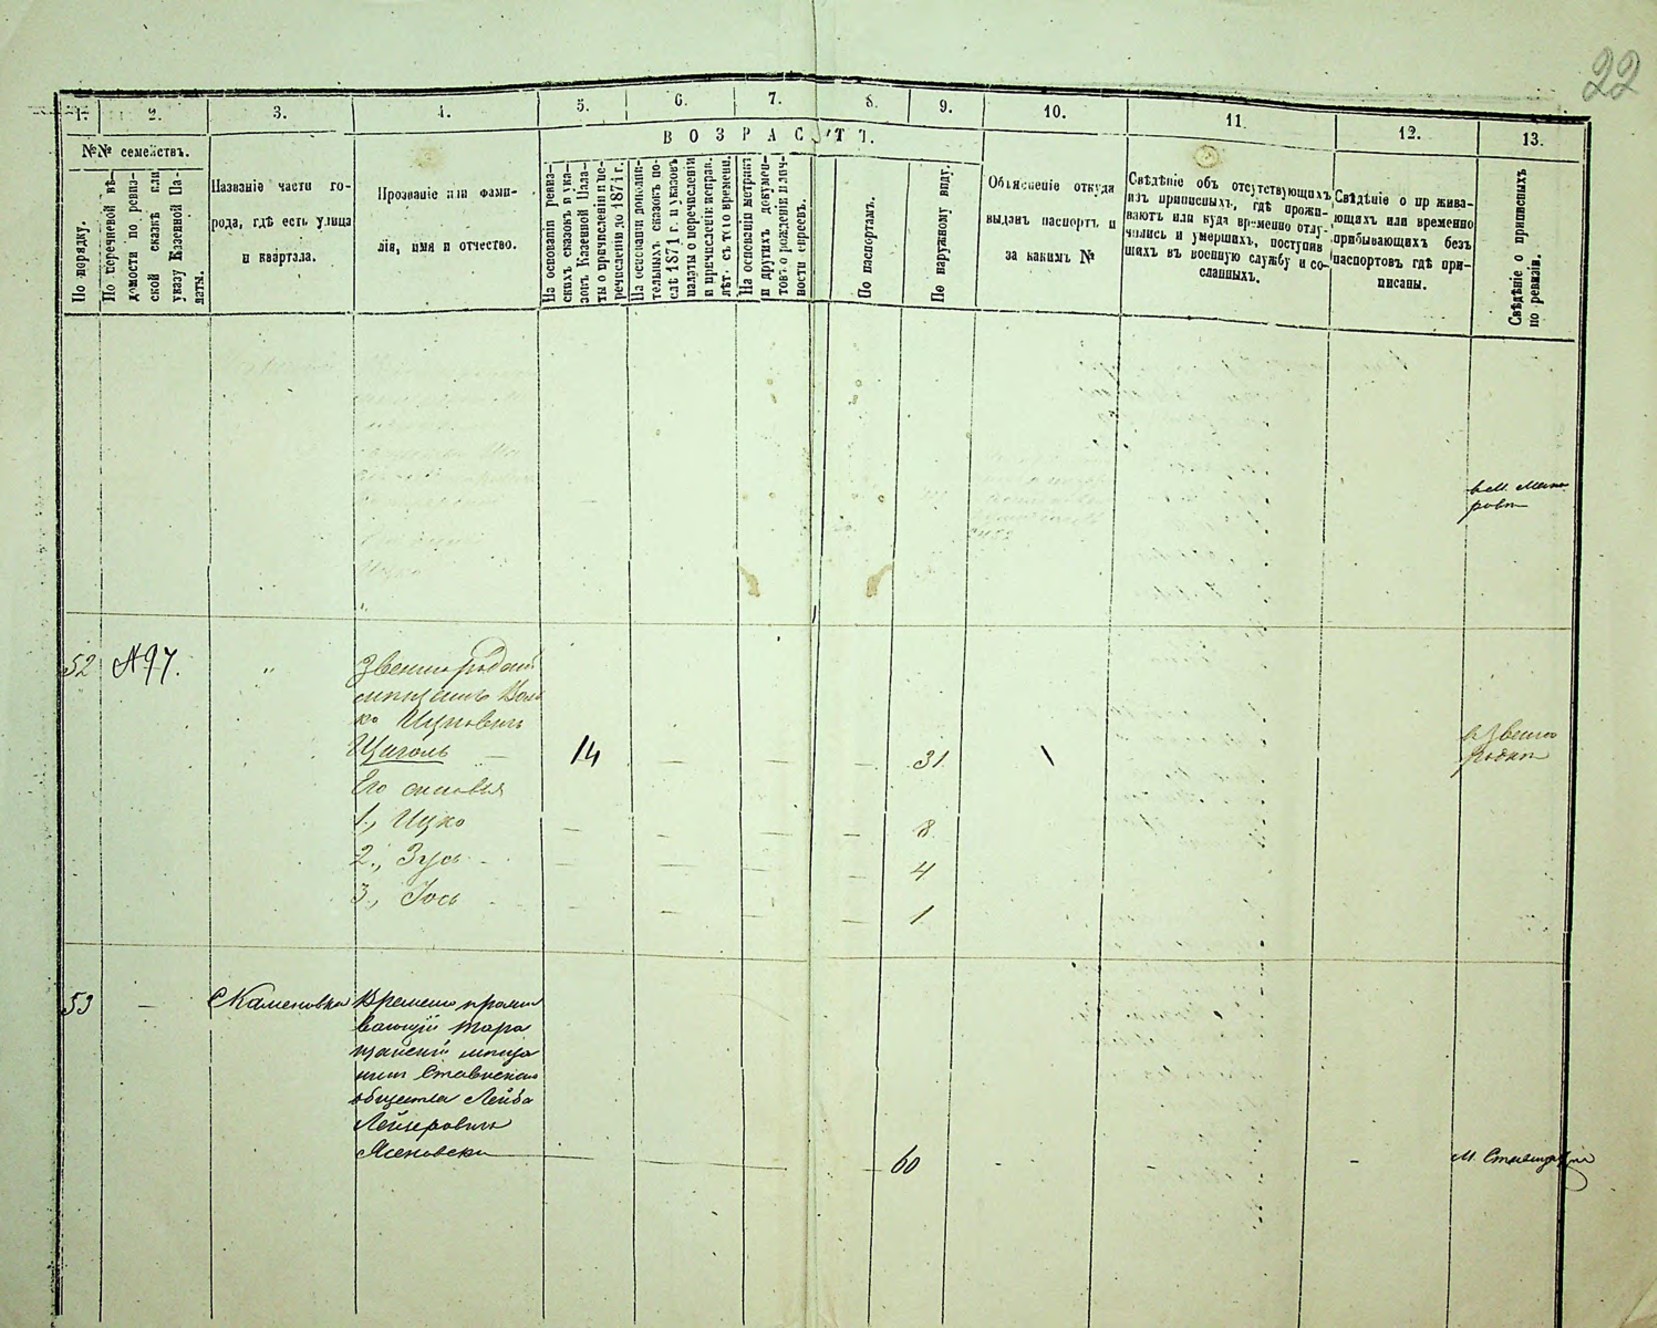 22
1. 2. 3. 4. 5. 6. 7. 8. 9. 10. 11. 12. 13.
№№ семействъ.
В О З Р А С Т Ъ.
По порядку.
По перечневой вѣ-
домости по ревиз-
ской сказкѣ или
указу Казенной Па-
латы.
Названіе части го-
рода, гдѣ есть улица
и квартала.
Прозваніе или фами-
лія, имя и отчество.
На основаніи ревиз-
скихъ сказокъ и ука-
зовъ Казенной Пала-
ты о причисленіи и пе-
речисленіи до 1871 г.
На основаніи дополни-
тельныхъ сказокъ по-
слѣ 1871 г. и указовъ
палаты о перечисленіи
и причисленіе исправ.
лѣт. съ того времени.
На основаніи метрикъ
и другихъ докумен-
товъ о рожденіи и лич-
ности евреевъ.
По паспортамъ.
По наружному виду.
Объясненіе откуда
выданъ паспортъ и
за какимъ №
Свѣдѣніе объ отсутствующихъ
изъ приписныхъ, гдѣ прожи-
ваютъ или куда временно отлу-
чились и умершихъ, поступив
шихъ въ военную службу и со-
сланныхъ.
Свѣдѣніе о прожива-
ющихъ или временно
прибывающихъ безъ
паспортовъ гдѣ при-
писаны.
Свѣдѣніе о приписныхъ
по ревизіи.
52 №97. " Звенигородскій
мѣщанинъ Воль
ко Ицковичъ
Цыголь — 14 — — — 31
Его сыновья
1., Ицко — — — — 8
2., Зусь — — — — 4
3., Іось — — — — 1
53 — С Каменовка Временно прожи
вающій Тара
щанскій мѣща
нинъ Ставискаго
общества Лейба
Лейзеровичъ
Ясеновски — — — 60 - - -